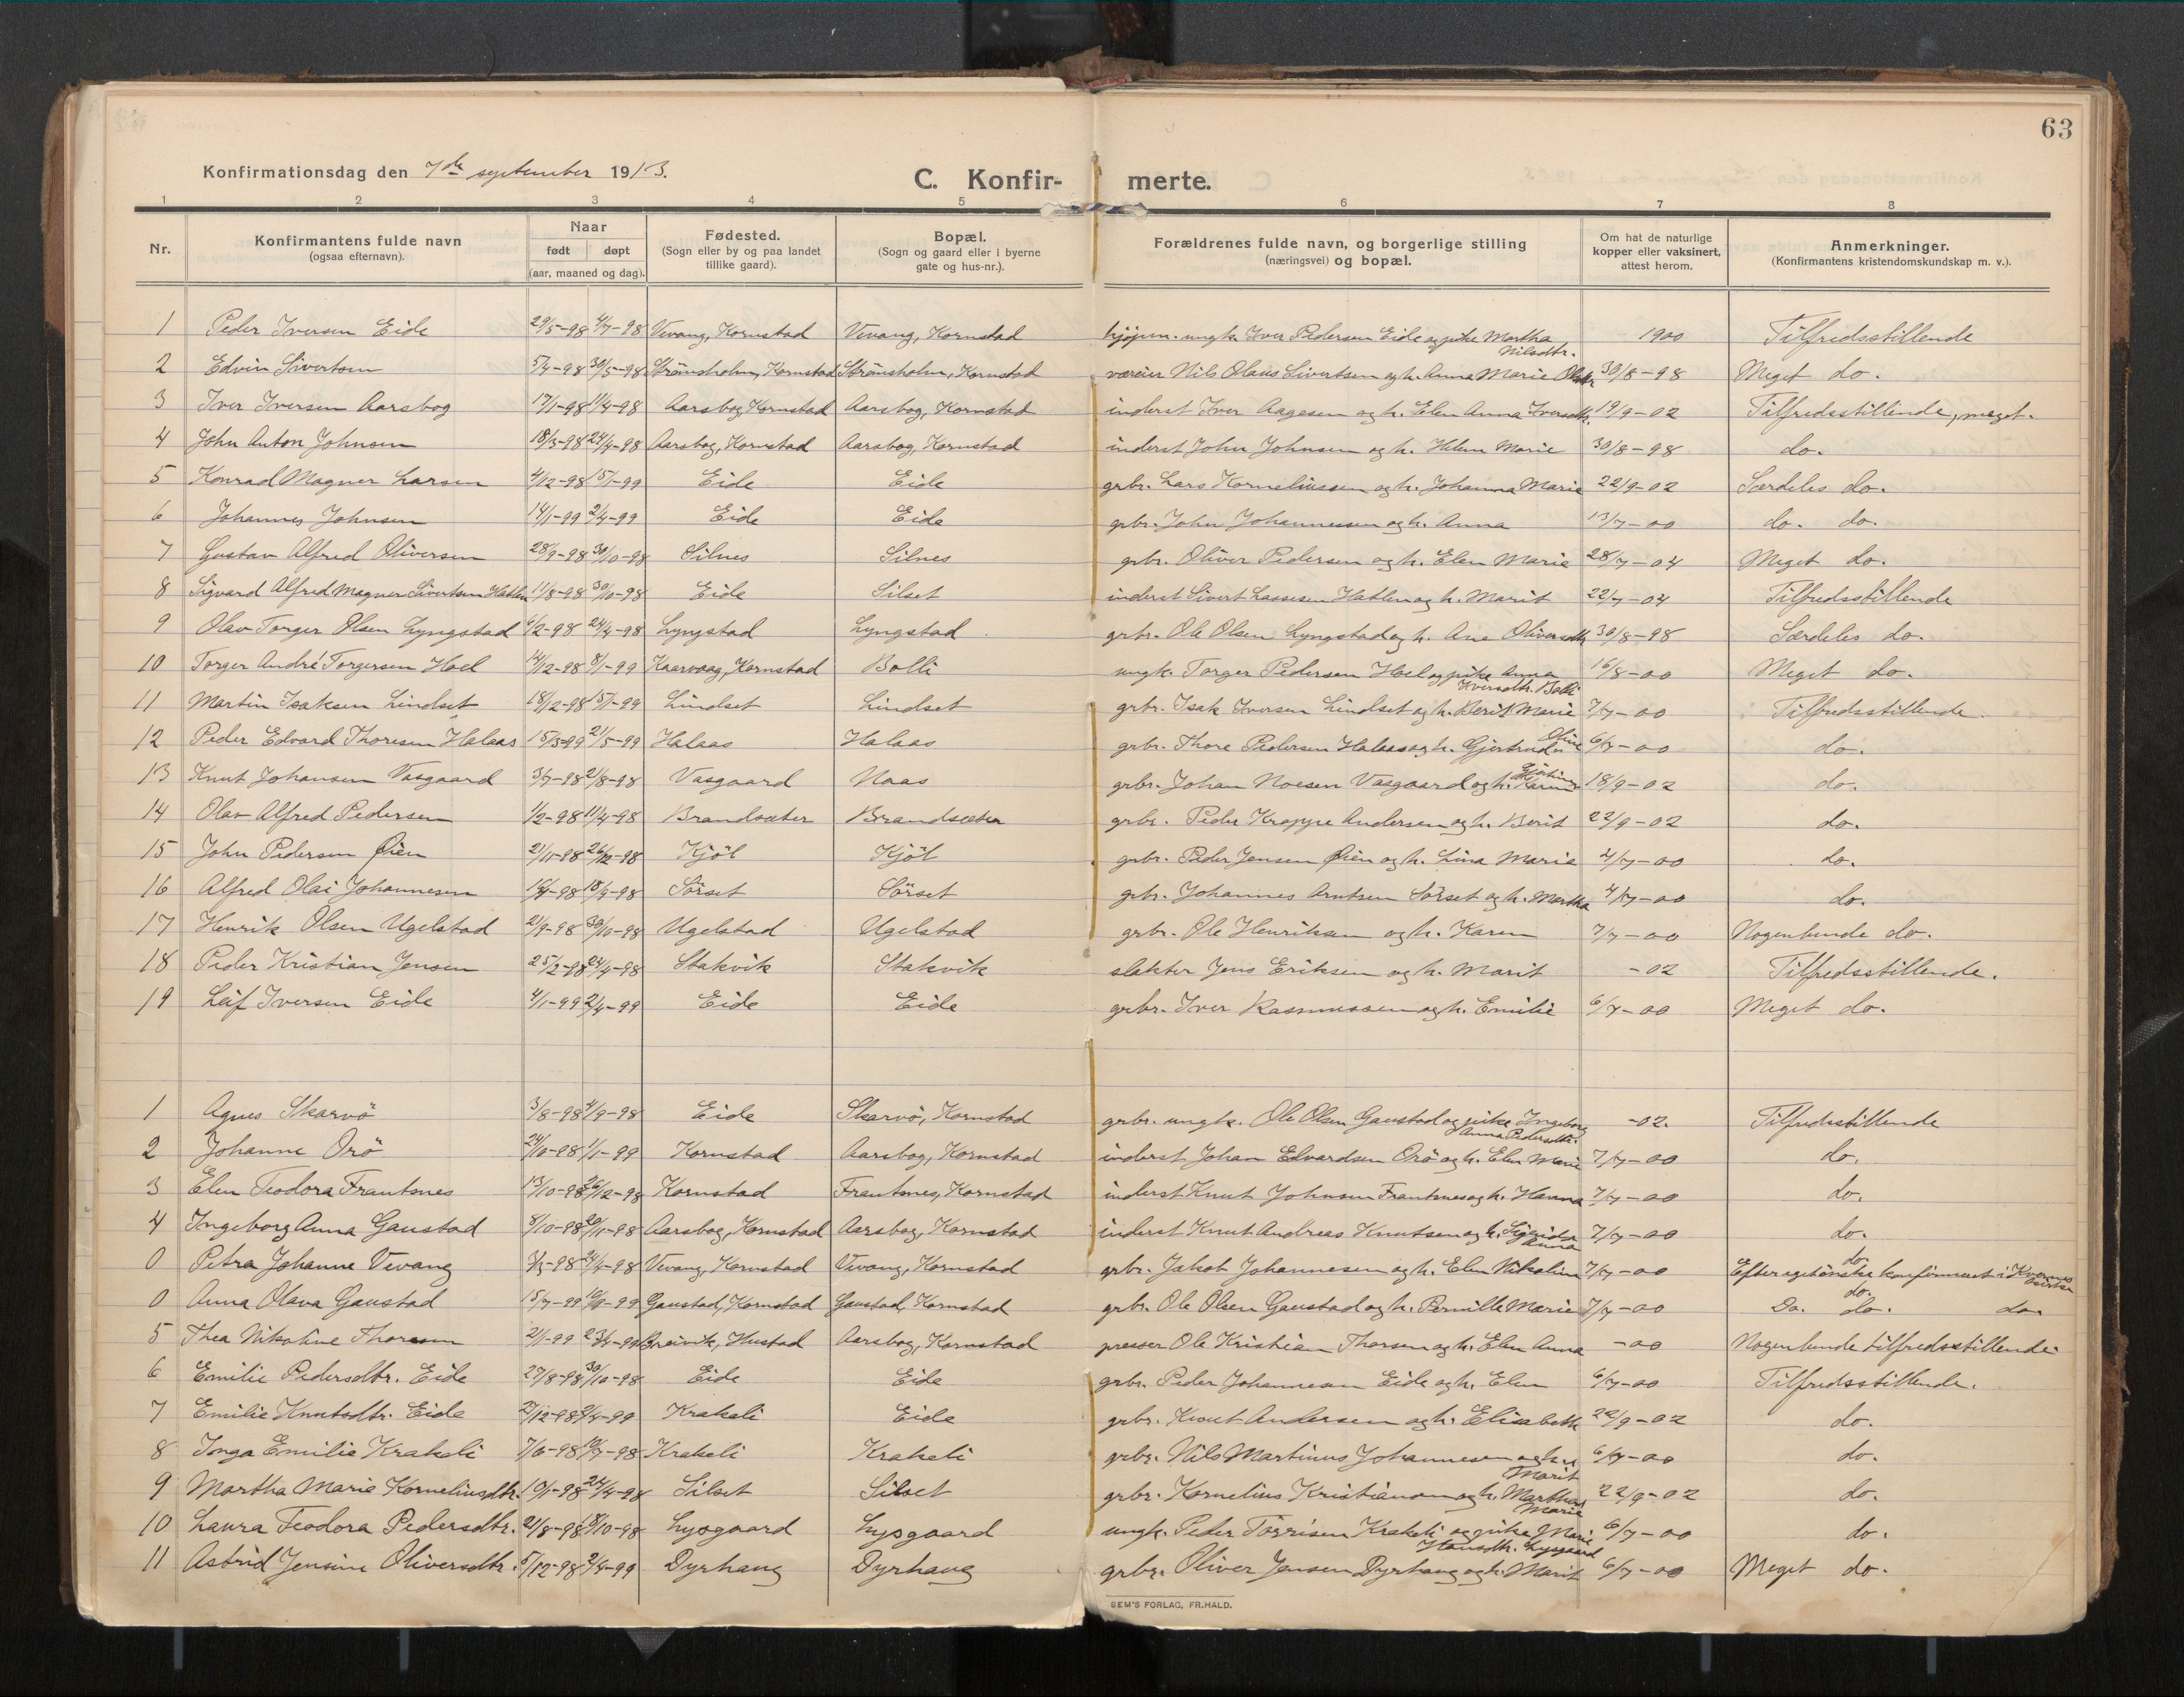 63
Konfirmationsdag den 7de september 1913.
C. Konfir- merte.
1 2 3 4 5 6 7 8
Nr. Konfirmantens fulde navn (ogsaa efternavn). Naar født døpt (aar, maaned og dag). Fødested. (Sogn eller by og paa landet tillike gaard). Bopæl. (Sogn og gaard eller i byerne gate og hus-nr.). Forældrenes fulde navn, og borgerlige stilling (næringsvei) og bopæl. Om hat de naturlige kopper eller vaksinert, attest herom. Anmerkninger. (Konfirmantens kristendomskundskap m. v.).
1 Peder Iversen Eide 29/5-98 4/7-98 Vevang, Kornstad Vevang, Kornstad ungk. Iver Pedersen Eide og pike Martha Nilsdtr. 1900 Tilfredsstillende
2 Edvin Sivertsen 5/4-98 30/5-98 Strömsholm, Kornstad Strömsholm, Kornstad væreier Nils Olaus Sivertsen og h. Anna Marie Olsdtr 30/8-98 Meget do.
3 Iver Iversen Aarsbog 17/1-98 11/4-98 Aarsbog, Kornstad Aarsbog, Kornstad inderst Iver Aagesen og h. Elen Anna Iversdtr. 19/9-02 Tilfredsstillende, meget.
4 John Anton Johnsen 18/3-98 24/4-98 Aarsbog, Kornstad Aarsbog, Kornstad inderst John Johnsen og h. Marie 30/8-98 do.
5 Konrad Magner Larsen 4/12-98 15/1-99 Eide Eide grbr. Lars Korneliussen og h. Johanna Marie 22/9-02 Særdeles do.
6 Johannes Johnsen 14/1-99 2/4-99 Eide Eide grbr. John Johannessen og h. Anna 13/7-00 do. do.
7 Gustav Alfred Oliversen 28/9-98 30/10-98 Silnes Silnes grbr. Oliver Pedersen og h. Elen Marie 28/7-04 Meget do.
8 Sigvard Alfred Magner Sivertsen Hatlen 11/8-98 30/10-98 Eide Silset inderst Sivert Lassesen Hatlen og h. Marit 22/7-04 Tilfredsstillende
9 Olav Torger Olsen Lyngstad 6/2-98 24/4-98 Lyngstad Lyngstad grbr. Ole Olsen Lyngstad og h. Ane Oliversdtr 30/8-98 Særdeles do.
10 Torger André Torgersen Hoel 14/12-98 8/1-99 Kaarvaag, Kornstad Bolli ungk. Torger Pedersen Hoel og pike Anna Iversdtr. Bolli 16/8-00 Meget do.
11 Martin Isaksen Lindset 18/12-98 15/1-99 Lindset Lindset grbr. Isak Iversen Lindset og h. Berit Marie 7/7-00 Tilfredsstillende.
12 Peder Edvard Thoresen Halaas 15/3-99 21/5-99 Halaas Halaas grbr. Thore Pedersen Halaas og h. Gjertrude Oline 6/7-00 do.
13 Knut Johansen Vasgaard 3/7-98 21/8-98 Vasgaard Naas grbr. Johan Noesen Vasgaard og h. Karen 18/9-02 do.
14 Olav Alfred Pedersen 1/2-98 11/4-98 Brandsæter Brandsæter grbr. Peder Kroppe Andersen og h. Berit 22/9-02 do.
15 John Pedersen Øien 21/11-98 26/12-98 Kjöl Kjöl grbr. Peder Jensen Øien og h. Lina Marie 4/7-00 do.
16 Alfred Olai Johannesen 18/9-98 Sörset Sörset grbr. Johannes Arntsen Sörset og h. Martha 4/7-00 do.
17 Henrik Olsen Ugelstad 21/9-98 30/10-98 Ugelstad Ugelstad grbr. Ole Henriksen og h. Karen 7/7-00 Nogenlunde do.
18 Peder Kristian Jensen 25/2-98 24/4-98 Stakvik Stakvik slakter Jens Eriksen og h. Marit -02 Tilfredsstillende.
19 Leif Iversen Eide 4/1-99 2/4-99 Eide Eide grbr. Iver Rasmussen og h. Emilie 6/7-00 Meget do.
1 Agnes Skarvö 3/8-98 4/9-98 Eide Skarvö, Kornstad grbr. ungk. Ole Olsen Gaustad og pike Ingeborg Anna Pedersdtr. -02. Tilfredsstillende
2 Johanne Orö 24/10-98 1/1-99 Kornstad Aarsbog, Kornstad inderst Johan Edvardsen Orö og h. Elen Marie 7/7-00 do.
3 Elen Teodora Frantsnes 13/10-98 26/12-98 Kornstad Frantsnes, Kornstad inderst Knut Johnsen Frantsnes og h. Hanna 7/7-00 do.
4 Ingeborg Anna Gaustad 8/10-98 20/11-98 Aarsbog, Kornstad Aarsbog, Kornstad inderst Knut Andreas Knutsen og h. Anna 7/7-00 do.
0 Petra Johanne Vevang 3/3-98 24/4-98 Vevang, Kornstad Vevang, Kornstad grbr. Jakob Johannesen og h. Elen Nikoline 7/7-00 do. Efter eget önske konfirmeret i Kvernes kirke
0 Anna Olava Gaustad 15/7-99 10/9-99 Gaustad, Kornstad Gaustad, Kornstad grbr. Ole Olsen Gaustad og h. Pernille Marie 7/7-00 do. Do. do. do.
5 Thea Nikoline Thoresen 2/1-99 23/4-99 Breivik, Hustad Aarsbog, Kornstad presser Ole Kristian Thorsen og h. Elen Anna -00 Nogenlunde tilfredsstillende
6 Emilie Pedersdtr. Eide 27/8-98 30/10-98 Eide Eide grbr. Peder Johannesen Eide og h. Elen 6/7-00 Tilfredsstillende.
7 Emilie Knutsdtr. Eide 27/12-98 2/4-99 Krakeli Eide grbr. Knut Andersen og h. Elisabeth 22/9-02 do.
8 Inga Emilie Krakeli 7/6-98 10/7-98 Krakeli Krakeli grbr. Nils Martinus Johannesen og h. Marit 6/7-00 do.
9 Martha Marie Korneliusdtr. 10/1-98 24/4-98 Silset Silset grbr. Kornelius Kristiansen og h. Martha Marie 22/9-02 do.
10 Laura Teodora Pedersdtr. 21/8-98 8/10-98 Lysgaard Lysgaard ungk. Peder Törrisen Krakeli og pike Marie Hansdtr. Lysgaard 6/7-00 do.
11 Astrid Jensine Oliversdtr. 5/12-98 2/4-99 Dyrhaug Dyrhaug grbr. Oliver Jensen Dyrhaug og h. Marit 6/7-00 Meget do.
SEM'S FORLAG, FR.HALD.